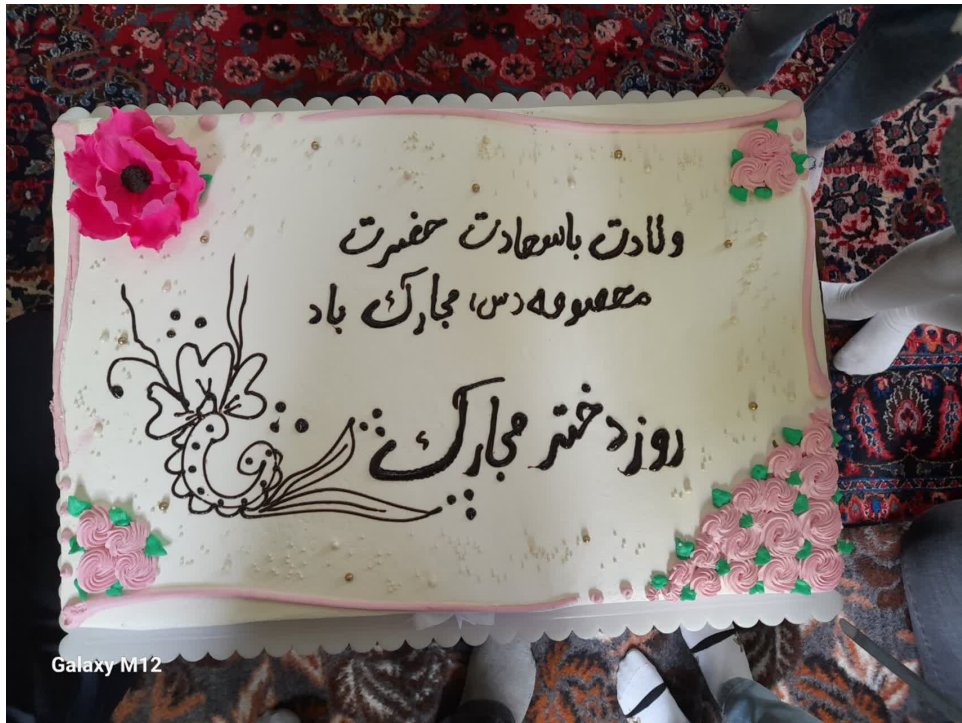 ولادت باسعادت حضرت
معصومه (س) مبارک باد
روز دختر مبارک
Galaxy M12